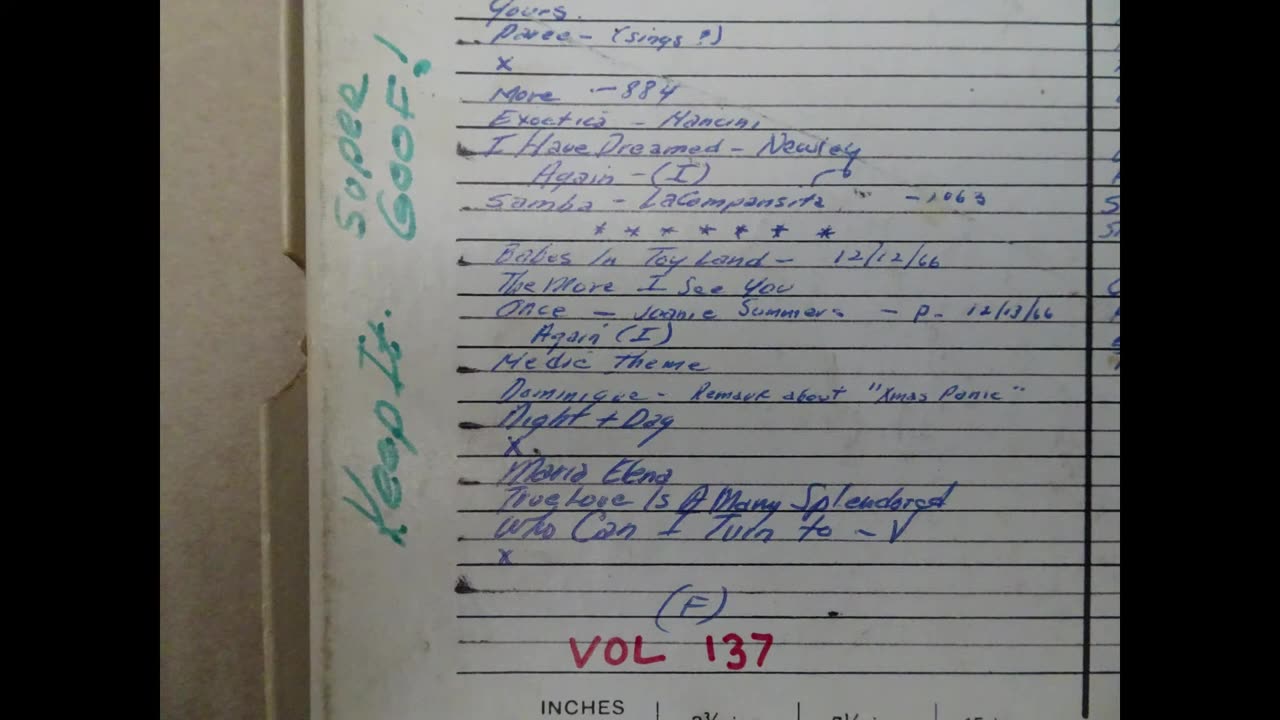 SUPER
GOOF!
Keep It.
Yours.
Paree - (sings?)
x
More - 884
Exoctica - Mancini
I Have Dreamed - Newley
Again - (I)
Samba - LaCompansita - 1063
* * * * * * *
Babes In Toyland - 12/12/66
The More I See You
Once - Joanie Summers - P - 12/13/66
Again (I)
Medic Theme
Dominique - Remark about "Xmas Panic"
Night + Day
x
Maria Elena
True Love Is A Many Splendored
Who Can I Turn To - V
x
(F)
VOL 137
INCHES